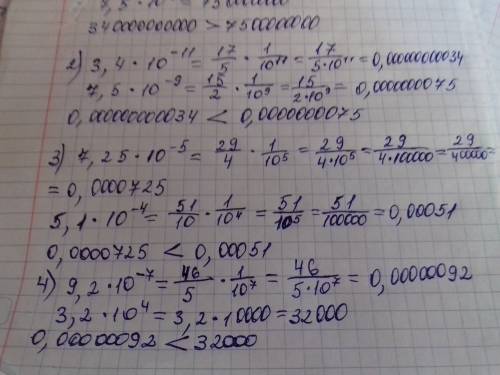 34000000000 > 75000000
2) 3,4 · 10⁻¹¹ = 17/5 · 1/10¹¹ = 17/(5·10¹¹) = 0,000000000034
7,5 · 10⁻⁹ = 15/2 · 1/10⁹ = 15/(2·10⁹) = 0,0000000075
0,000000000034 < 0,0000000075
3) 7,25 · 10⁻⁵ = 29/4 · 1/10⁵ = 29/(4·10⁵) = 29/(4·10000) = 29/40000 =
= 0,0000725
5,1 · 10⁻⁴ = 51/10 · 1/10⁴ = 51/10⁵ = 51/100000 = 0,00051
0,0000725 < 0,00051
4) 9,2 · 10⁻⁷ = 46/5 · 1/10⁷ = 46/(5·10⁷) = 0,00000092
3,2 · 10⁴ = 3,2 · 10000 = 32000
0,00000092 < 32000